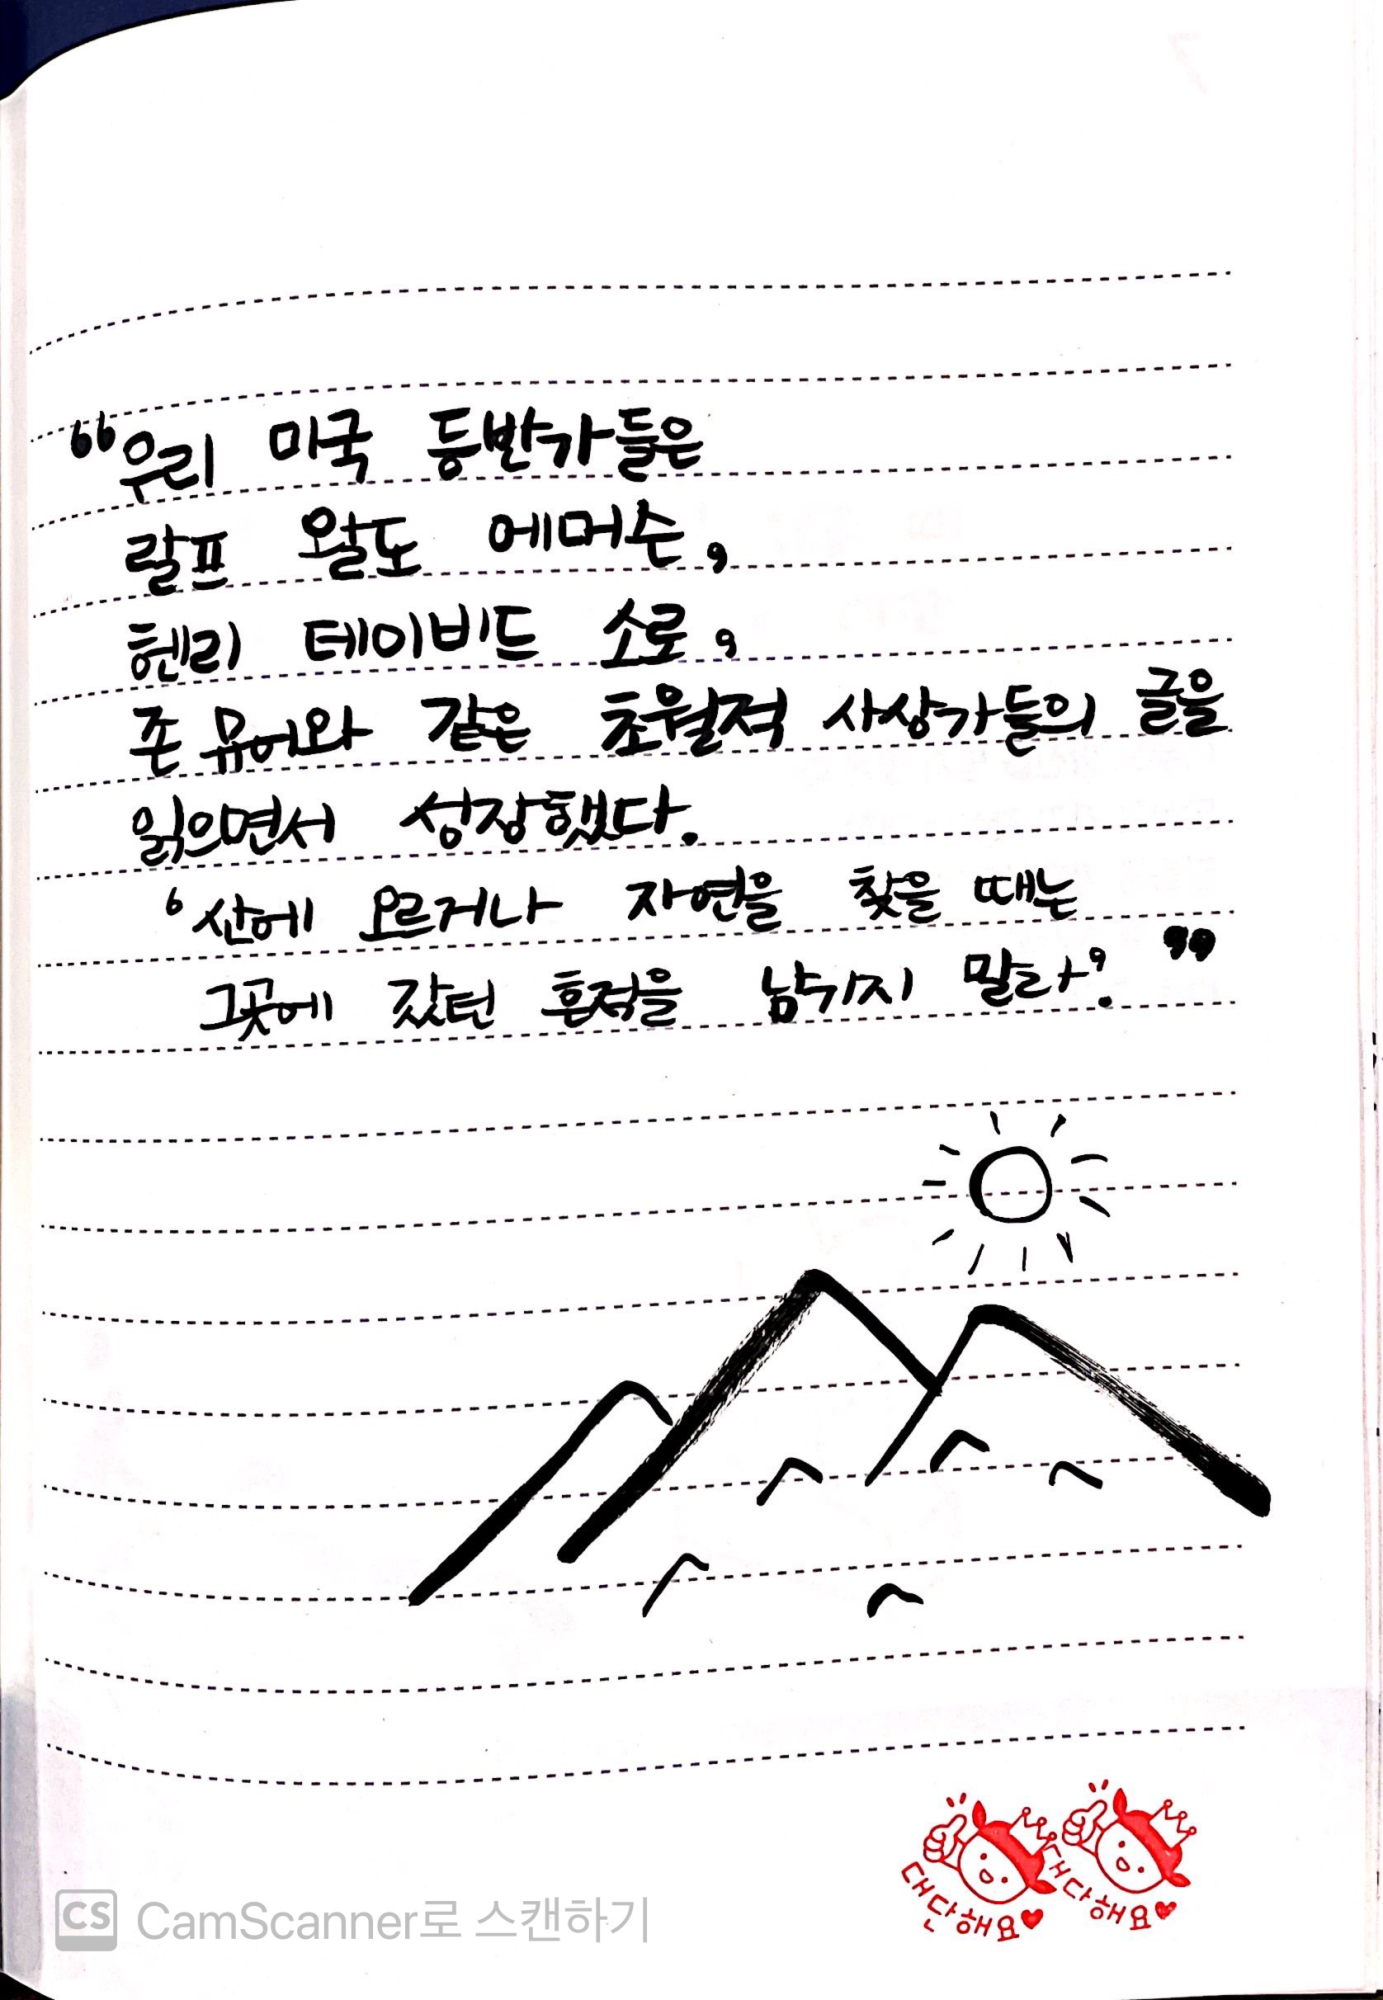 “우리 미국 등반가들은
랄프 왈도 에머슨,
헨리 데이비드 소로,
존 뮤어와 같은 초월적 사상가들의 글을
읽으면서 성장했다.
‘산에 오르거나 자연을 찾을 때는
그곳에 갔던 흔적을 남기지 말라’.”
대단해요♥ 대단해요♥
CS CamScanner로 스캔하기